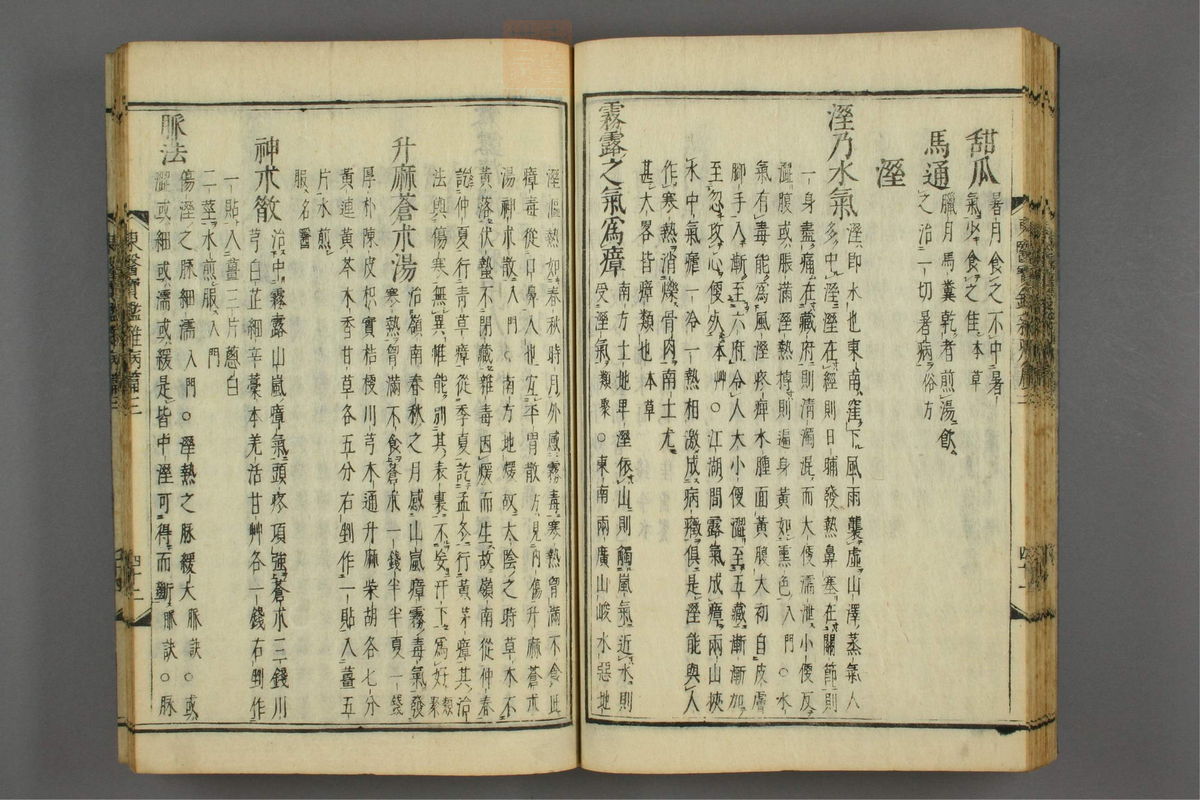 甜瓜 暑月食之不中暑
氣必食之佳本草
馬通 臘月馬糞乾者煎湯飲
之治一切暑病俗方
溼
溼乃水氣 溼即水也東南窪下風雨襲虛山澤蒸氣人
多中溼溼在經則日晡發熱鼻塞在關節則
一身盡痛在藏府則清濁混而大便濡泄小便反
澀腹或脹滿溼熱搏則遍身黃如熏色入門○水
氣有毒能爲風溼疼痺水腫面黃腹大初自皮膚
脚手入漸至六府令人大小便澀至五藏漸漸加
至忽攻心便死本艸○江湖間露氣成瘴兩山挾
水中氣瘧一冷一熱相激成病癥俱是溼能與人
作寒熱消爍骨肉南土尤
甚大畧皆瘴類也本草
霧露之氣爲瘴 南方土地卑溼依山則觸嵐氣近水則
受溼氣類聚○東南兩廣山峻水惡地
溼熱如春秋時月外感霧毒寒熱胷滿不食此
瘴毒從口鼻入也宜平胃散方見內傷升麻蒼朮
湯神朮散入門○南方地煖故太陰之時草木不
黃落伏蟄不閉藏雜毒因煖而生故嶺南從仲春
訖仲夏行青草瘴從季夏訖孟冬行黃茅瘴其治
法與傷寒無異惟能別其表裏不妄汗下爲好類聚
升麻蒼朮湯 治嶺南春秋之月感山嵐瘴霧毒氣發
寒熱胷滿不食蒼朮一錢半半夏一錢
厚朴陳皮枳實桔梗川芎木通升麻柴胡各七分
黃連黃芩木香甘草各五分右剉作一貼入薑五
片水煎
服名醫
神朮散 治中霧露山嵐瘴氣頭疼項強蒼朮三錢川
芎白芷細辛藁本羌活甘艸各一錢右剉作
一貼入薑三片蔥白
二莖水煎服入門
脈法 傷溼之脈細濡入門○溼熱之脈緩大脈訣○或
澀或細或濡或緩是皆中溼可得而斷脈訣○脈